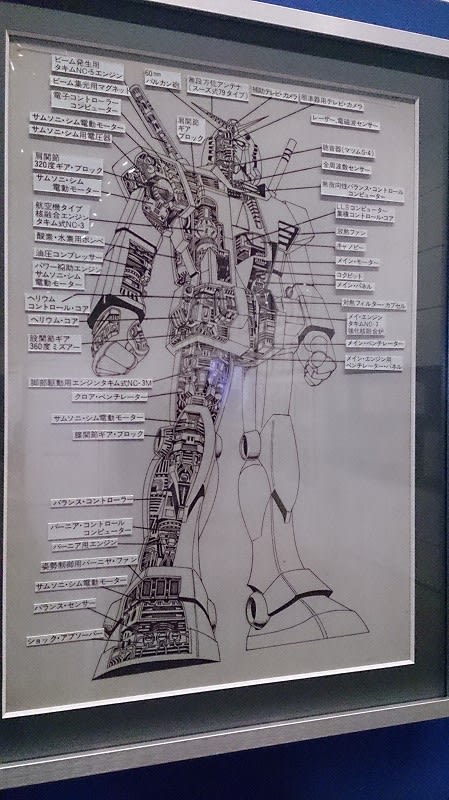 ビーム発生用
タキムNC-5エンジン
ビーム集元用マグネット
電子コントローラー
コンピューター
サムソニ・シム電動モーター
サムソニ・シム用電圧器
肩関節
320度ギア・ブロック
サムソニ・シム
電動モーター
航空機タイプ
核融合エンジン
タキム式NC-3
酸素・水素用ボンベ
油圧コンプレッサー
パワー脇助エンジン
サムソニ・シム
電動モーター
ヘリウム
コントロール・コア
ヘリウム・コア
股関節ギア
360度ミズアー
脚部駆動用エンジンタキム式NC-3M
クロア・ベンチレーター
サムソニ・シム電動モーター
膝関節ギア・ブロック
バランス・コントローラー
バーニア・コントロール
コンピューター
バーニア用エンジン
姿勢制御用バーニヤ・ファン
サムソニ・シム電動モーター
バランス・センサー
ショック・アブソーバー
60mm
バルカン砲
無段方位アンテナ
(スーズ式79タイプ)
肩関節
ギア
ブロック
補助テレビ・カメラ
照準器用テレビ・カメラ
レーザー、電磁波センサー
聴音器(マツムG-4)
全周波数センサー
無指向性バランス・コントロール
コンピューター
LLSコンピューター
集積コントロール・コア
放熱ファン
キャノピー
メイン・モーター
コクピット
メイン・パネル
対熱フィルター・カプセル
メイ・エンジン
タキムNC-7
強化核融合炉
メイン・ベンチレーター
メイン・エンジン用
ベンチレーター・パネル